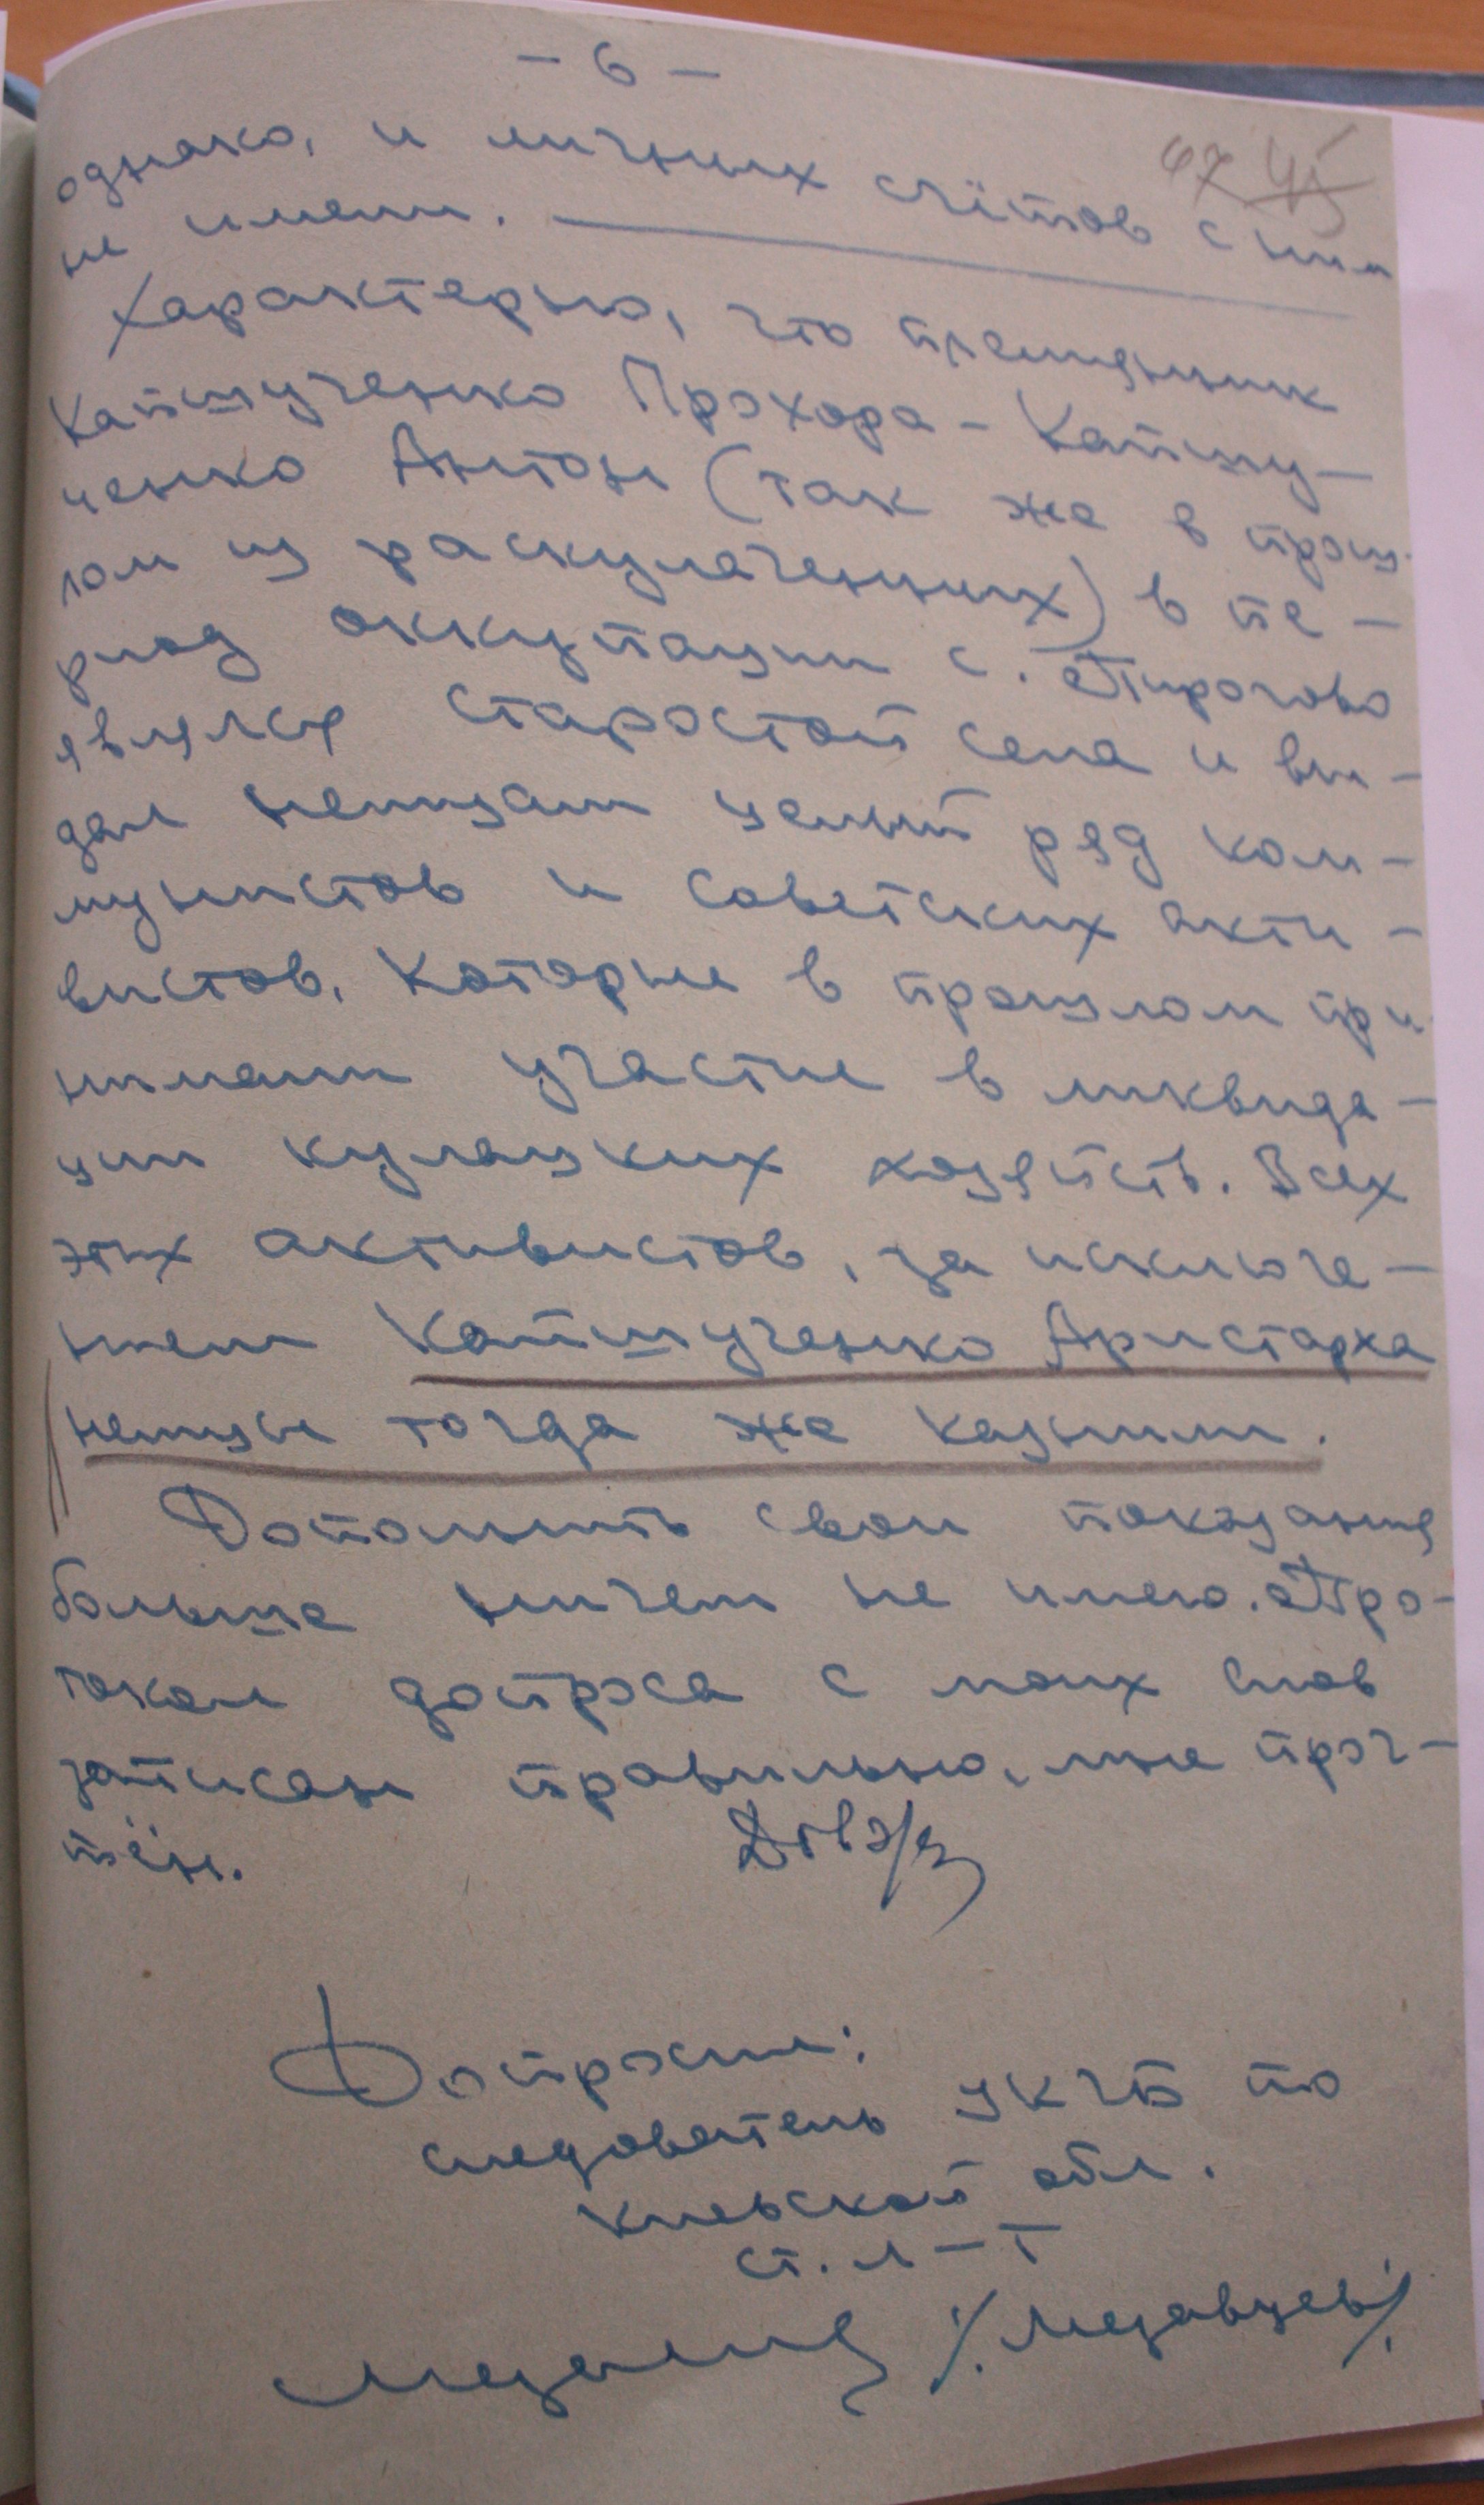 - 6 -
67 45
однако, и личных счётов с ним
не имели.
Характерно, что племянник
Капшученко Прохора - Капшу-
ченко Антон (так же в прош-
лом из раскулаченных) в пе-
риод оккупации с. Пирогово
являлся старостой села и вы-
дал немцам целый ряд ком-
мунистов и советских акти-
вистов, которые в прошлом при-
нимали участие в ликвида-
ции кулацких хозяйств. Всех
этих активистов, за исключе-
нием Капшученко Аристарха
немцы тогда же казнили.
Дополнить свои показания
больше ничем не имею. Про-
токол допроса с моих слов
записан правильно, мне проч-
тён.
Допросил:
следователь УКГБ по
Киевской обл.
ст. л-т